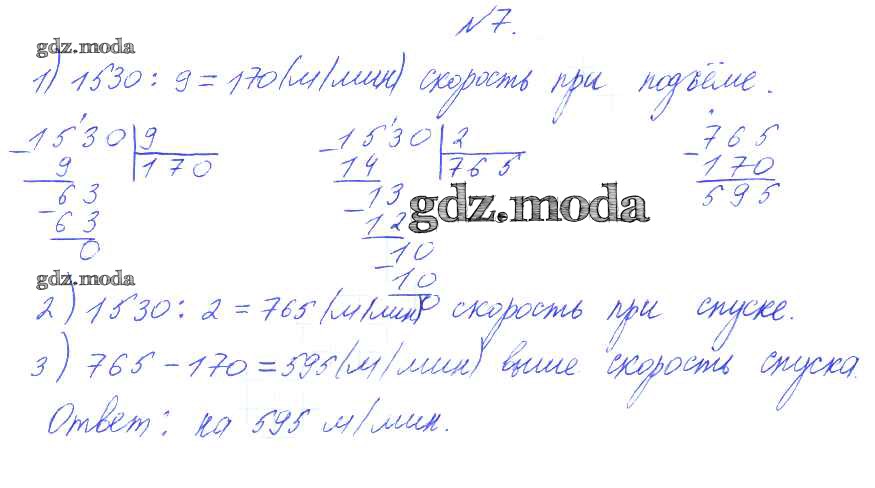 №7.
gdz.moda
1) 1530 : 9 = 170 (м/мин) скорость при подъёме.
1530 9 1530 2 765
- 9 170 - 14 765 - 170
63 13 595
- 63 - 12
0 10
- 10
0
gdz.moda
gdz.moda
2) 1530 : 2 = 765 (м/мин) скорость при спуске.
3) 765 - 170 = 595 (м/мин) выше скорость спуска.
Ответ: на 595 м/мин.